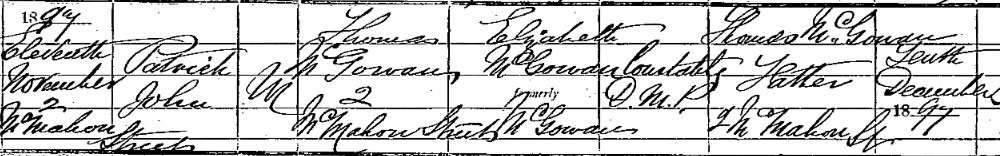 1897
Eleventh
November
2
McMahon
Street
Patrick
John
M
Thomas
McGowan
2
McMahon Street
Elizabeth
McGowan
formerly
McGowan
Constable
D.M.P.
Thomas McGowan
Father
2 McMahon St
Tenth
December
1897